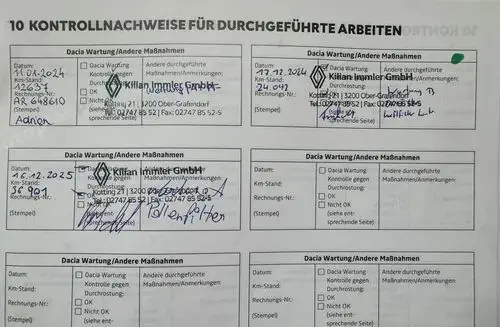 10 KONTROLLNACHWEISE FÜR DURCHGEFÜHRTE ARBEITEN
Dacia Wartung/Andere Maßnahmen
Datum:
11.01.2024
Km-Stand:
12637
Rechnungs-Nr.:
AR 648610
(Stempel)
Adrien
Dacia Wartung
Kontrolle gegen
Durchrostung:
OK
Nicht OK
(siehe ent-
sprechende Seite)
Andere durchgeführte
Maßnahmen/Anmerkungen:
Kilian Immler GmbH
Kotting 21 | 3200 Ober-Grafendorf
Tel.: 02747 85 52 | Fax: 02747 85 52-5
Dacia Wartung/Andere Maßnahmen
Datum:
17.12.2024
Km-Stand:
24 042
Andere durchgeführte
Maßnahmen/Anmerkungen:
Kilian Immler GmbH
Kotting 21 | 3200 Ober-Grafendorf
Tel.: 02747 85 52 | Fax: 02747 85 52-5
Wartung B
(Stempel)
sprechende Seite)
Dacia Wartung/Andere Maßnahmen
Datum:
16.12.2025
Km-Stand:
36 901
Rechnungs-Nr.:
(Stempel)
Kontrolle gegen
Durchrostung:
OK
Nicht OK
Andere durchgeführte
Maßnahmen/Anmerkungen:
Kilian Immler GmbH
Kotting 21 | 3200
Tel.: 02747 85 52 | Fax: 02747 85 52-5
Pollenfilter
Dacia Wartung/Andere Maßnahmen
Datum:
Km-Stand:
Rechnungs-Nr.:
(Stempel)
Dacia Wartung
Kontrolle gegen
Durchrostung:
OK
Nicht OK
(siehe ent-
sprechende Seite)
Andere durchgeführte
Maßnahmen/Anmerkungen:
Dacia Wartung/Andere Maßnahmen
Datum:
Km-Stand:
Rechnungs-Nr.:
(Stempel)
Dacia Wartung
Kontrolle gegen
Durchrostung:
OK
Nicht OK
(siehe ent-
Andere durchgeführte
Maßnahmen/Anmerkungen:
Dacia Wartung/Andere Maßnahmen
Datum:
Km-Stand:
Rechnungs-Nr.:
(Stempel)
Dacia Wartung
Kontrolle gegen
Durchrostung:
OK
Nicht OK
(siehe ent-
Andere durchgeführte
Maßnahmen/Anmerkungen: